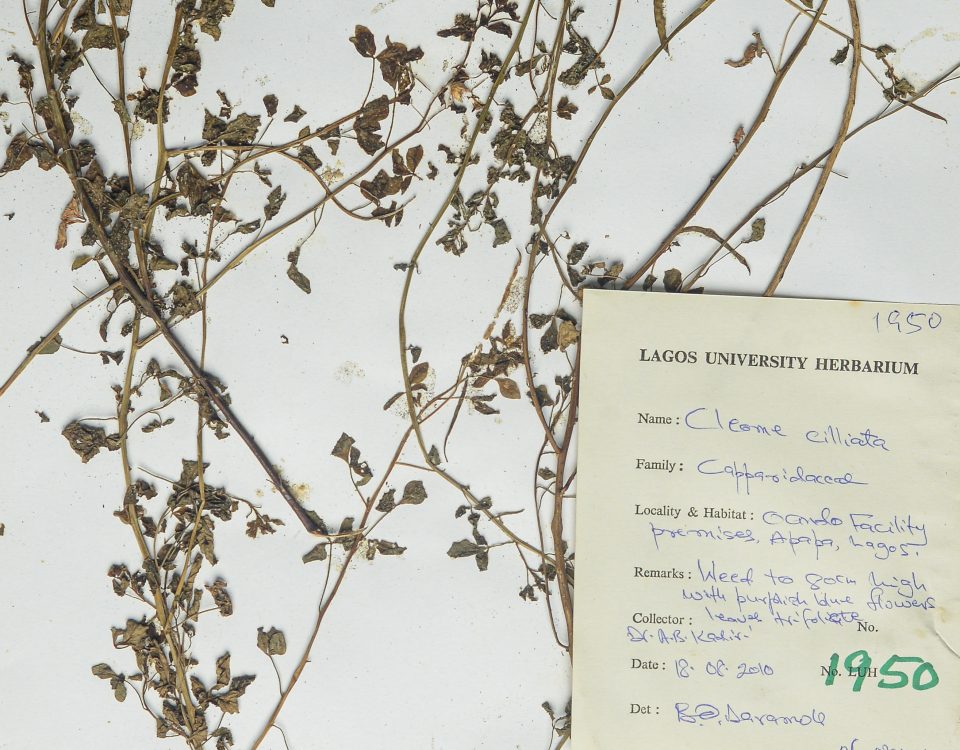 1950
LAGOS UNIVERSITY HERBARIUM
Name: Cleome cilliata
Family: Capparidaceae
Locality & Habitat: Oando Facility
premises, Apapa, Lagos.
Remarks: Weed to 80cm high
with purplish blue flowers
Collector: leaves trifoliate No.
Dr. A.B. Kadiri
Date: 18.08.2010 No. LUH 1950
Det: B.O. Daramola